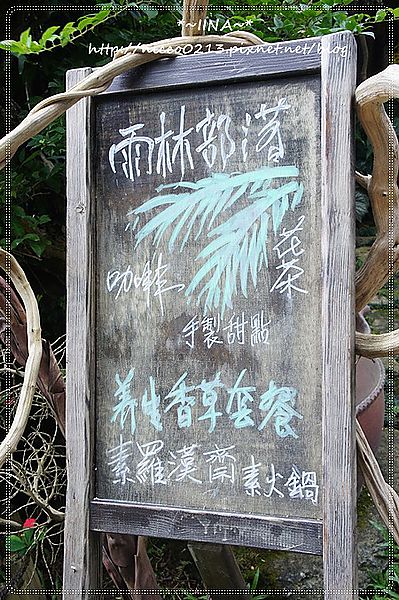 *~IINA~*
http://nicco0213.pixnet.net/blog
雨林部落
咖啡
花茶
手製甜點
养生香草套餐
素羅漢齋
素火鍋